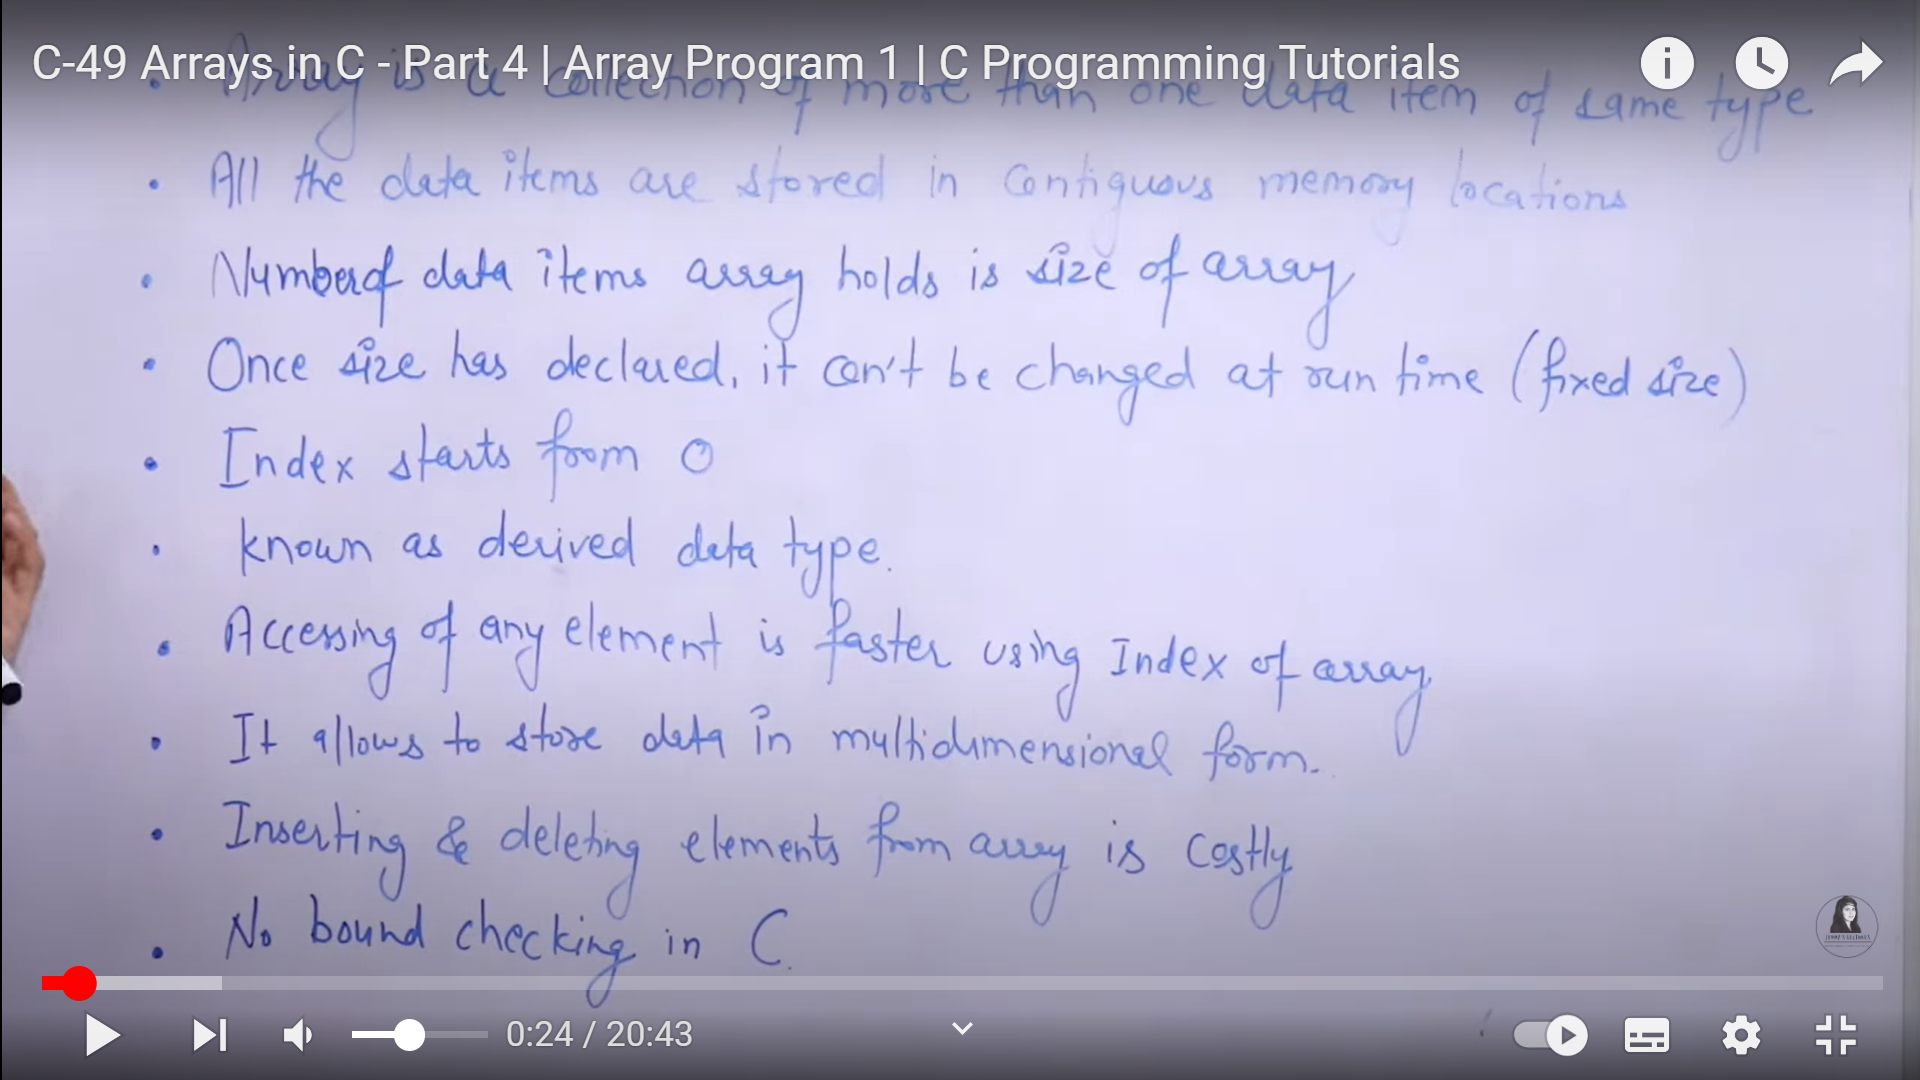 C-49 Arrays in C - Part 4 | Array Program 1 | C Programming Tutorials
• Array is a collection of more than one data item of same type
• All the data items are stored in contiguous memory locations
• Number of data items array holds is size of array
• Once size has declared, it can't be changed at run time (fixed size)
• Index starts from 0
• known as derived data type.
• Accessing of any element is faster using Index of array
• It allows to store data in multidimensional form.
• Inserting & deleting elements from array is costly
• No bound checking in C.
0:24 / 20:43